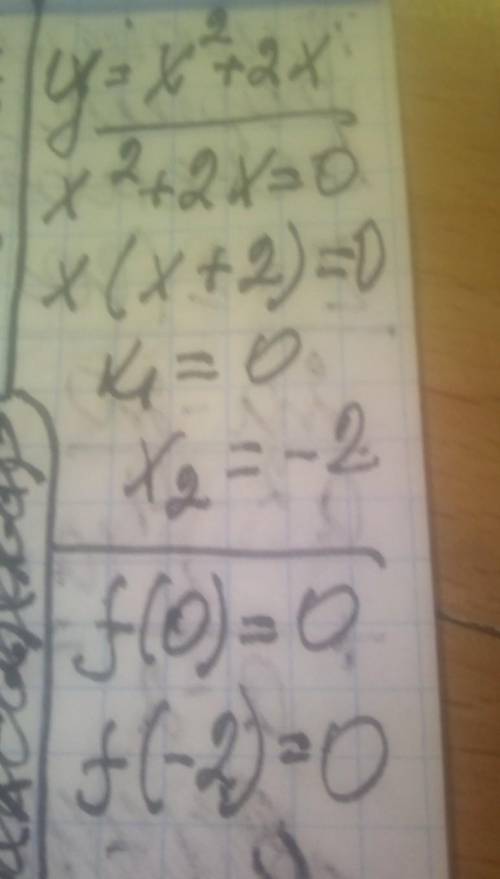 y = x² + 2x
x² + 2x = 0
x(x + 2) = 0
x₁ = 0
x₂ = -2
f(0) = 0
f(-2) = 0